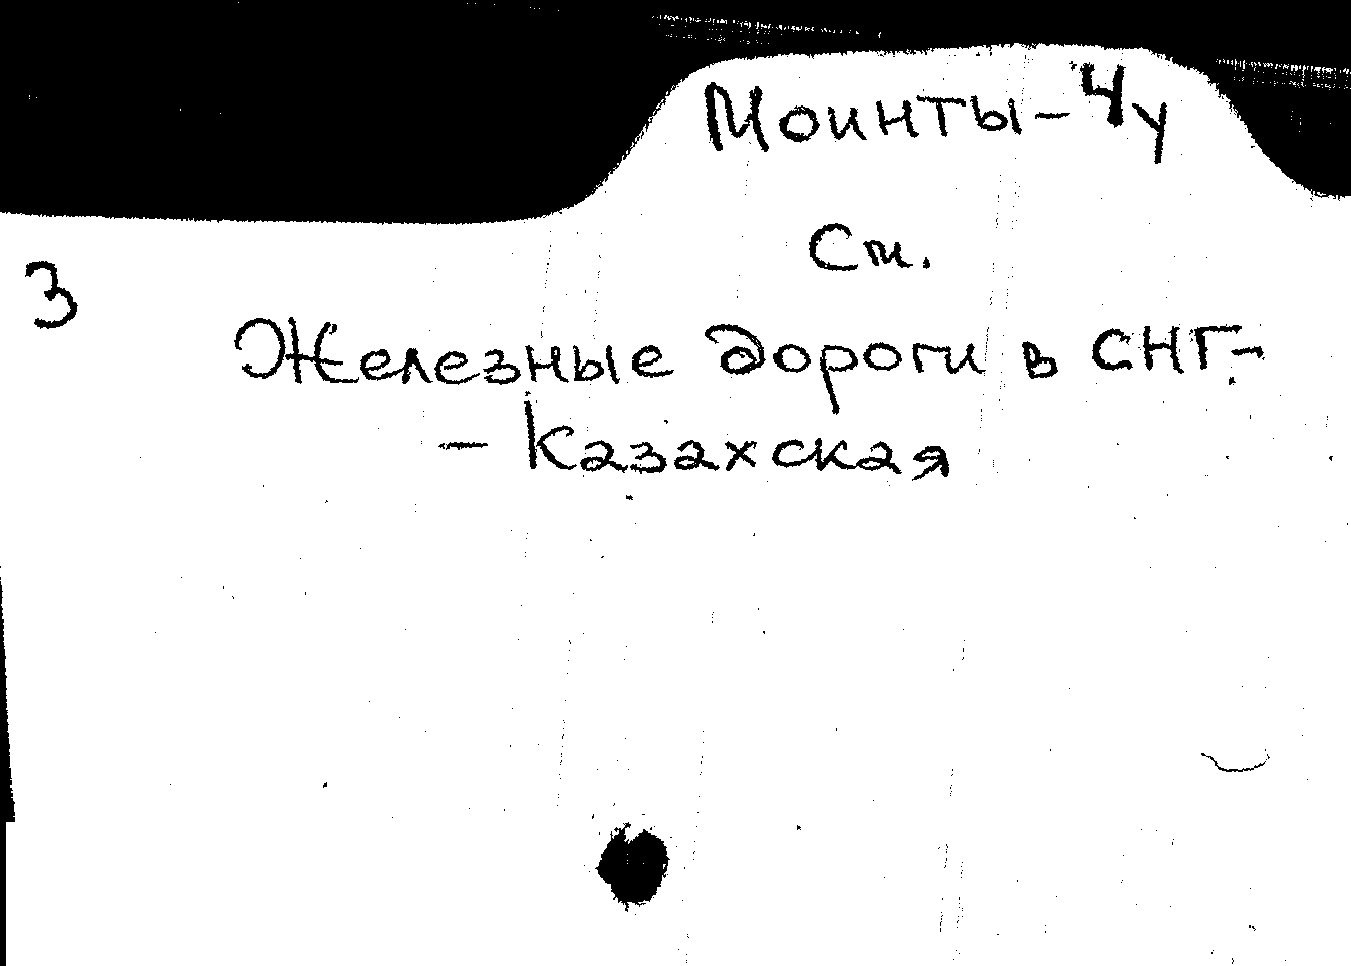 Моинты-Чу
См.
3
Железные дороги в СНГ-
- Казахская